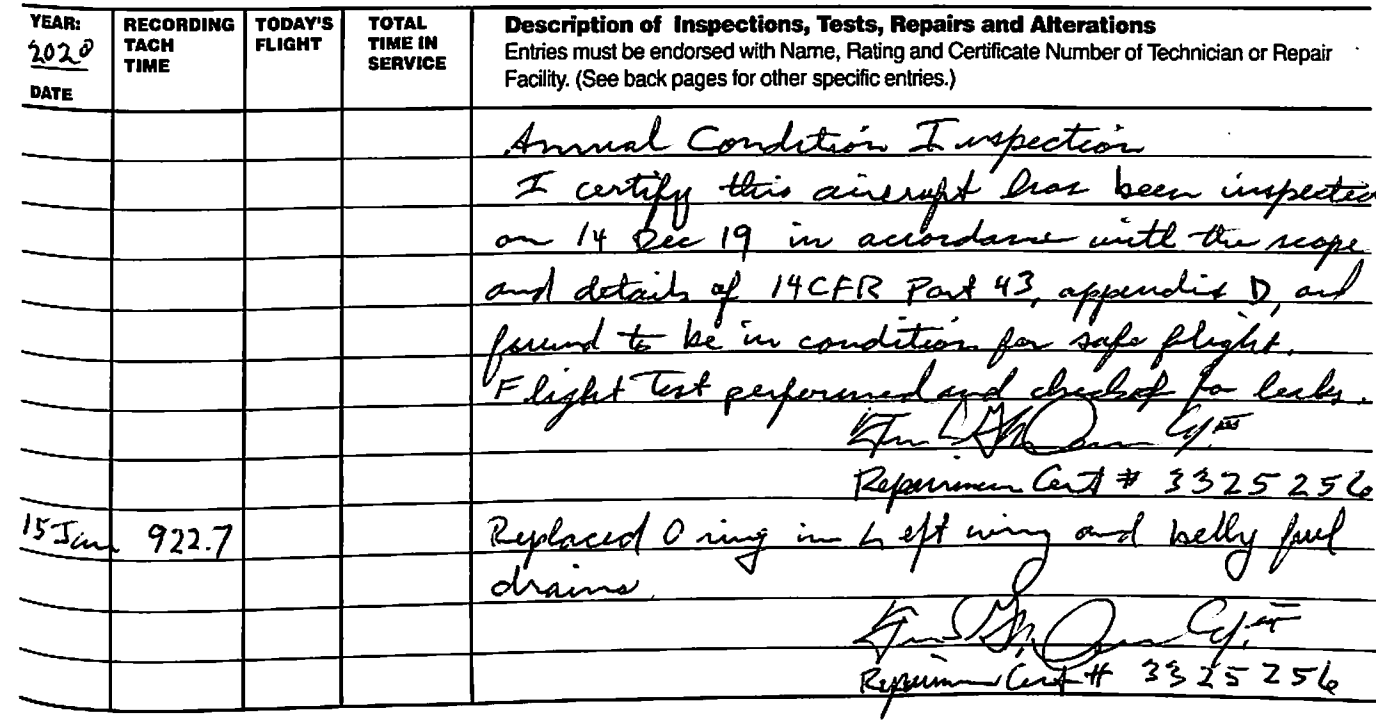 YEAR: 2020
DATE
RECORDING TACH TIME
TODAY'S FLIGHT
TOTAL TIME IN SERVICE
Description of Inspections, Tests, Repairs and Alterations
Entries must be endorsed with Name, Rating and Certificate Number of Technician or Repair
Facility. (See back pages for other specific entries.)
Annual Condition Inspection
I certify this aircraft has been inspected
on 14 Dec 19 in accordance with the scope
and details of 14CFR Part 43, appendix D, and
found to be in condition for safe flight.
Flight Test performed and checked for leaks.
Repairman Cert # 3325256
15 Jan 922.7 Replaced O ring in Left wing and belly fuel
drains.
Repairman Cert # 3325256